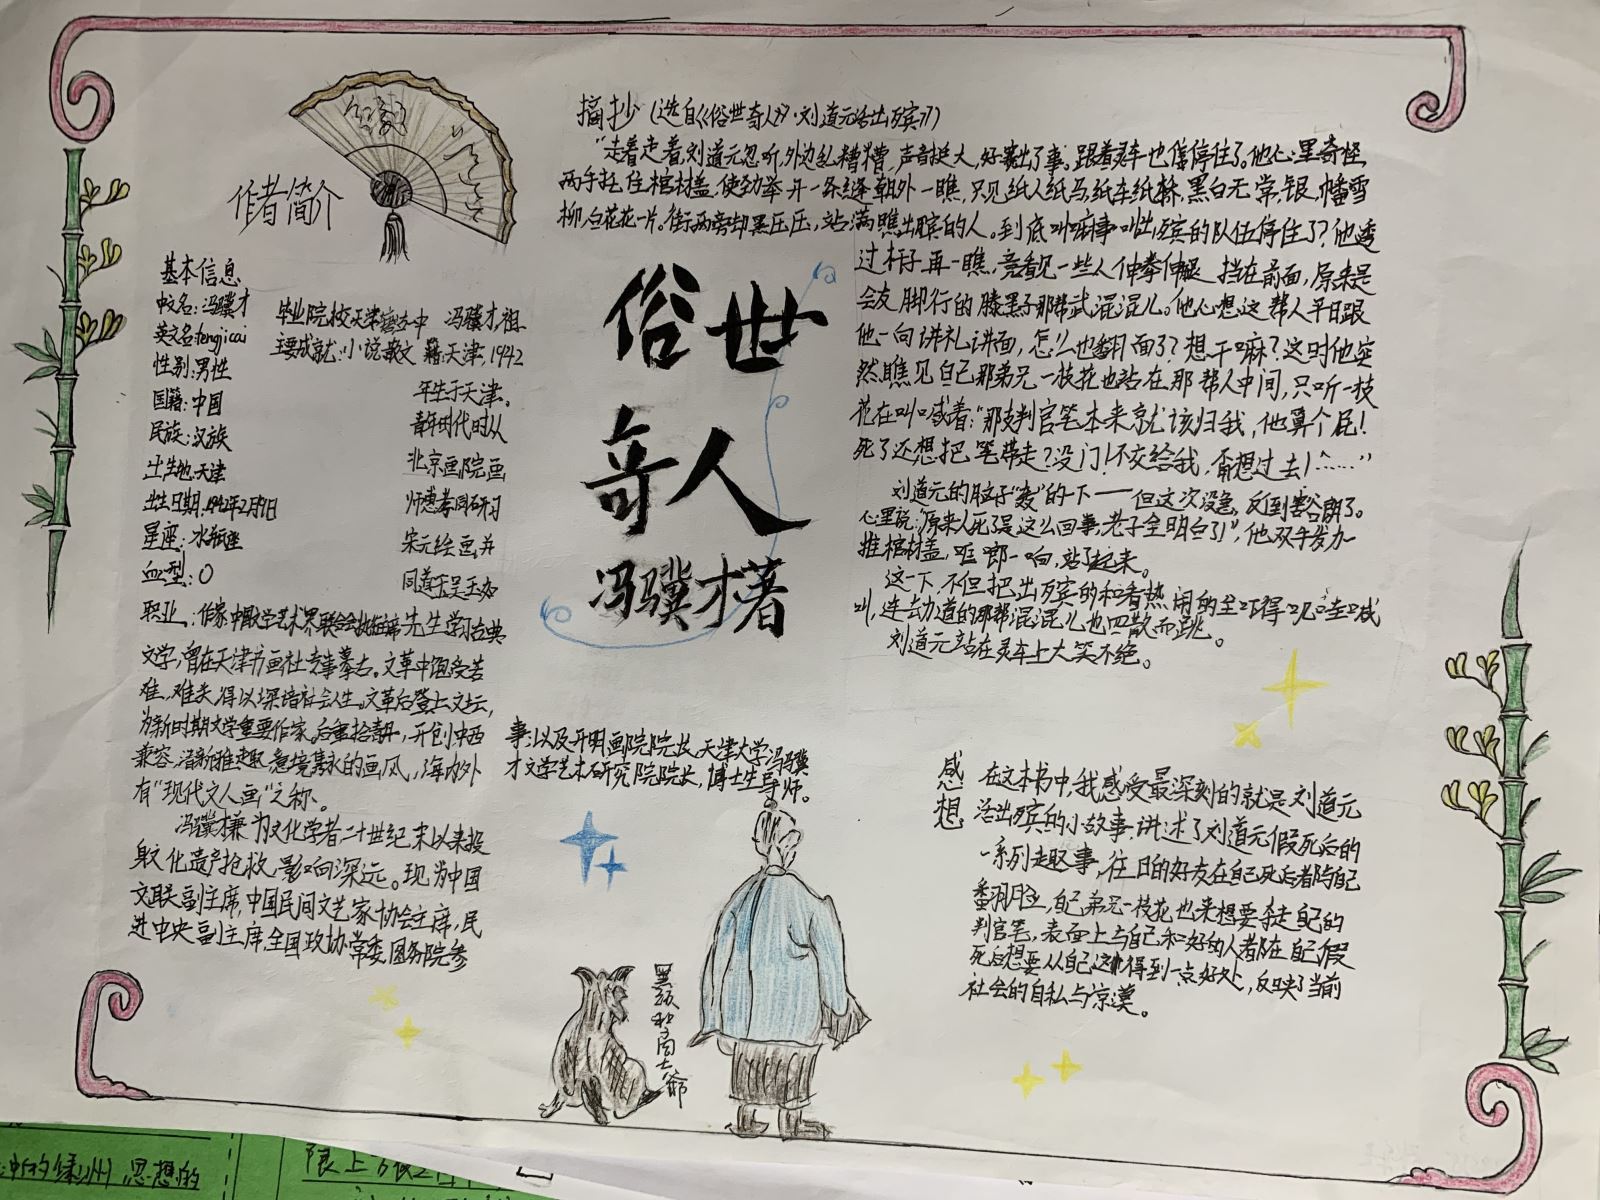 作者简介
基本信息
中文名：冯骥才
英文名fengjicai
性别：男性
国籍：中国
民族：汉族
出生地：天津
出生日期：1942年2月9日
星座：水瓶座
血型：O
毕业院校天津塘沽一中
主要成就：小说散文
冯骥才，祖
籍天津，1942
年生于天津。
青年时代时从
北京画院画
师惠孝同研习
宋元绘画，并
同道玉吴玉如
职业：作家中国文学艺术界联合会执行主席先生学习古典
文学，曾在天津书画社专事摹古。文革中饱受苦
难，难关得以深谙社会人生。文革后登上文坛，
为新时期文学重要作家。后重拾青丹，开创中西
兼容，清新雅趣，意境隽永的画风，海内外
有“现代文人画”之称。
冯骥才兼为文化学者二十世纪末以来投
身文化遗产抢救，影响深远。现为中国
文联副主席，中国民间文艺家协会主席，民
进中央副主席，全国政协常委，国务院参
事；以及开明画院院长，天津大学冯骥
才文学艺术研究院院长，博士生导师。
俗世
奇人
冯骥才著
摘抄（选自《俗世奇人》·刘道元活出殡》）
“走着走着，刘道元忽听，外边乱糟糟，声音挺大，好赛出了事。跟着灵车也停住了。他心里奇怪，
两手托住棺材盖，使劲举开一条缝朝外一瞧，只见纸人纸马，纸车纸轿，黑白无常，银幡雪
柳，白花花一片。街两旁却黑压压，站满瞧出殡的人。到底叫嘛事叫出殡的队伍停住了？他透
过杆子再一瞧，竟看见一些人伸拳伸腿，挡在前面，原来是
会友脚行的滕黑子那帮武混混儿。他心想这帮人平日跟
他一向讲礼讲面，怎么也翻了面了？想干嘛？这时他突
然瞧见自己那弟兄一枝花也站在那帮人中间，只听一枝
花在叫喊着：“那支判官笔本来就该归我，他算个屁！
死了还想把笔带走？没门！不交给我，甭想过去！……”
刘道元的脑子“轰”的一下——但这次没急，反到豁朗了。
心里说：“原来人死了是这么回事，老子全明白了！”，他双手发力一
推棺材盖，哐啷一响，站了起来。
这一下，不但把出殡的和看热闹的全吓得呱哇喊
叫，连去劫道的那帮混混儿也四散而跳。
刘道元站在灵车上大笑不绝。
感想
在这本书中，我感受最深刻的就是刘道元
活出殡的小故事，讲述了刘道元假死后的
一系列走趣事，往日的好友在自己死后都与自己
翻脸，自己弟兄一枝花也来想要拿走自己的
判官笔，表面上与自己和好的人都在自己假
死后想要从自己这儿得到一点好处，反映了当前
社会的自私与凉漠。
思想的